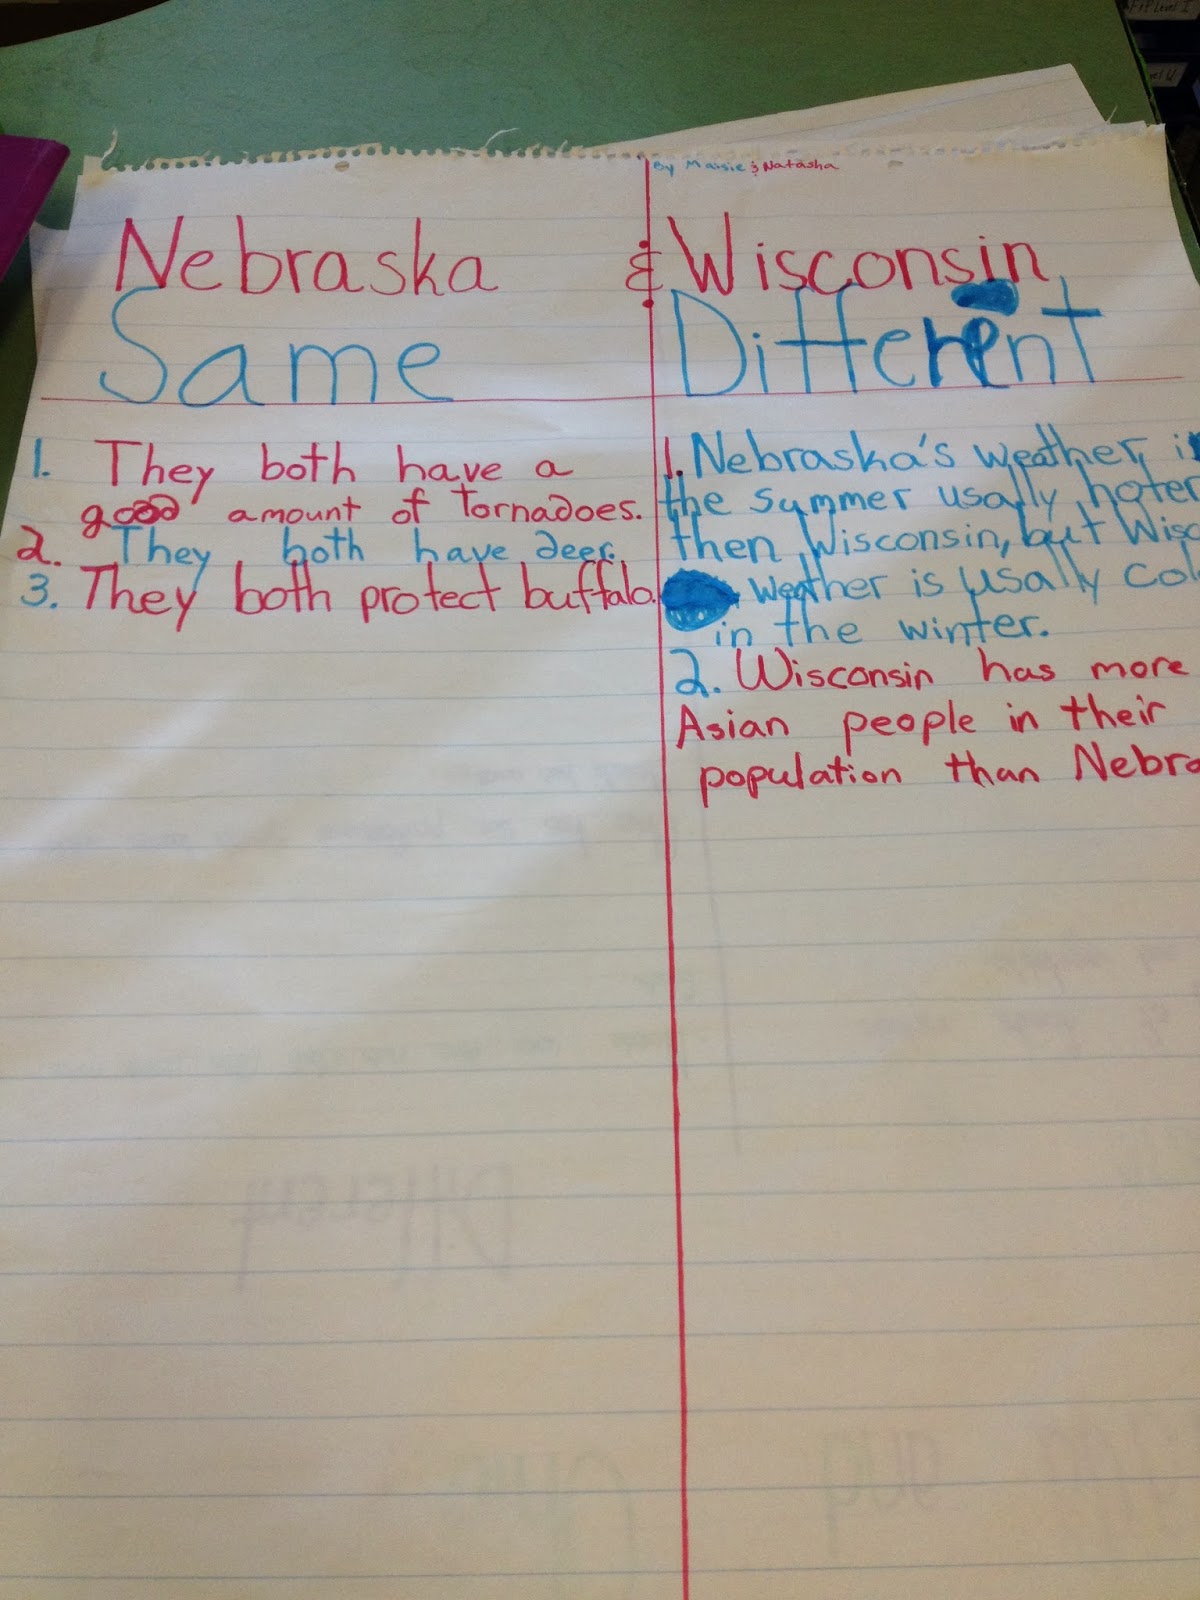 By Maisie & Natasha
Nebraska & Wisconsin
Same
Different
1. They both have a
good amount of Tornadoes.
2. They both have deer.
3. They both protect buffalo.
1. Nebraska's weather, i
the summer usally hoter
then Wisconsin, but Wisc
weather is usally col
in the winter.
2. Wisconsin has more
Asian people in their
population than Nebra